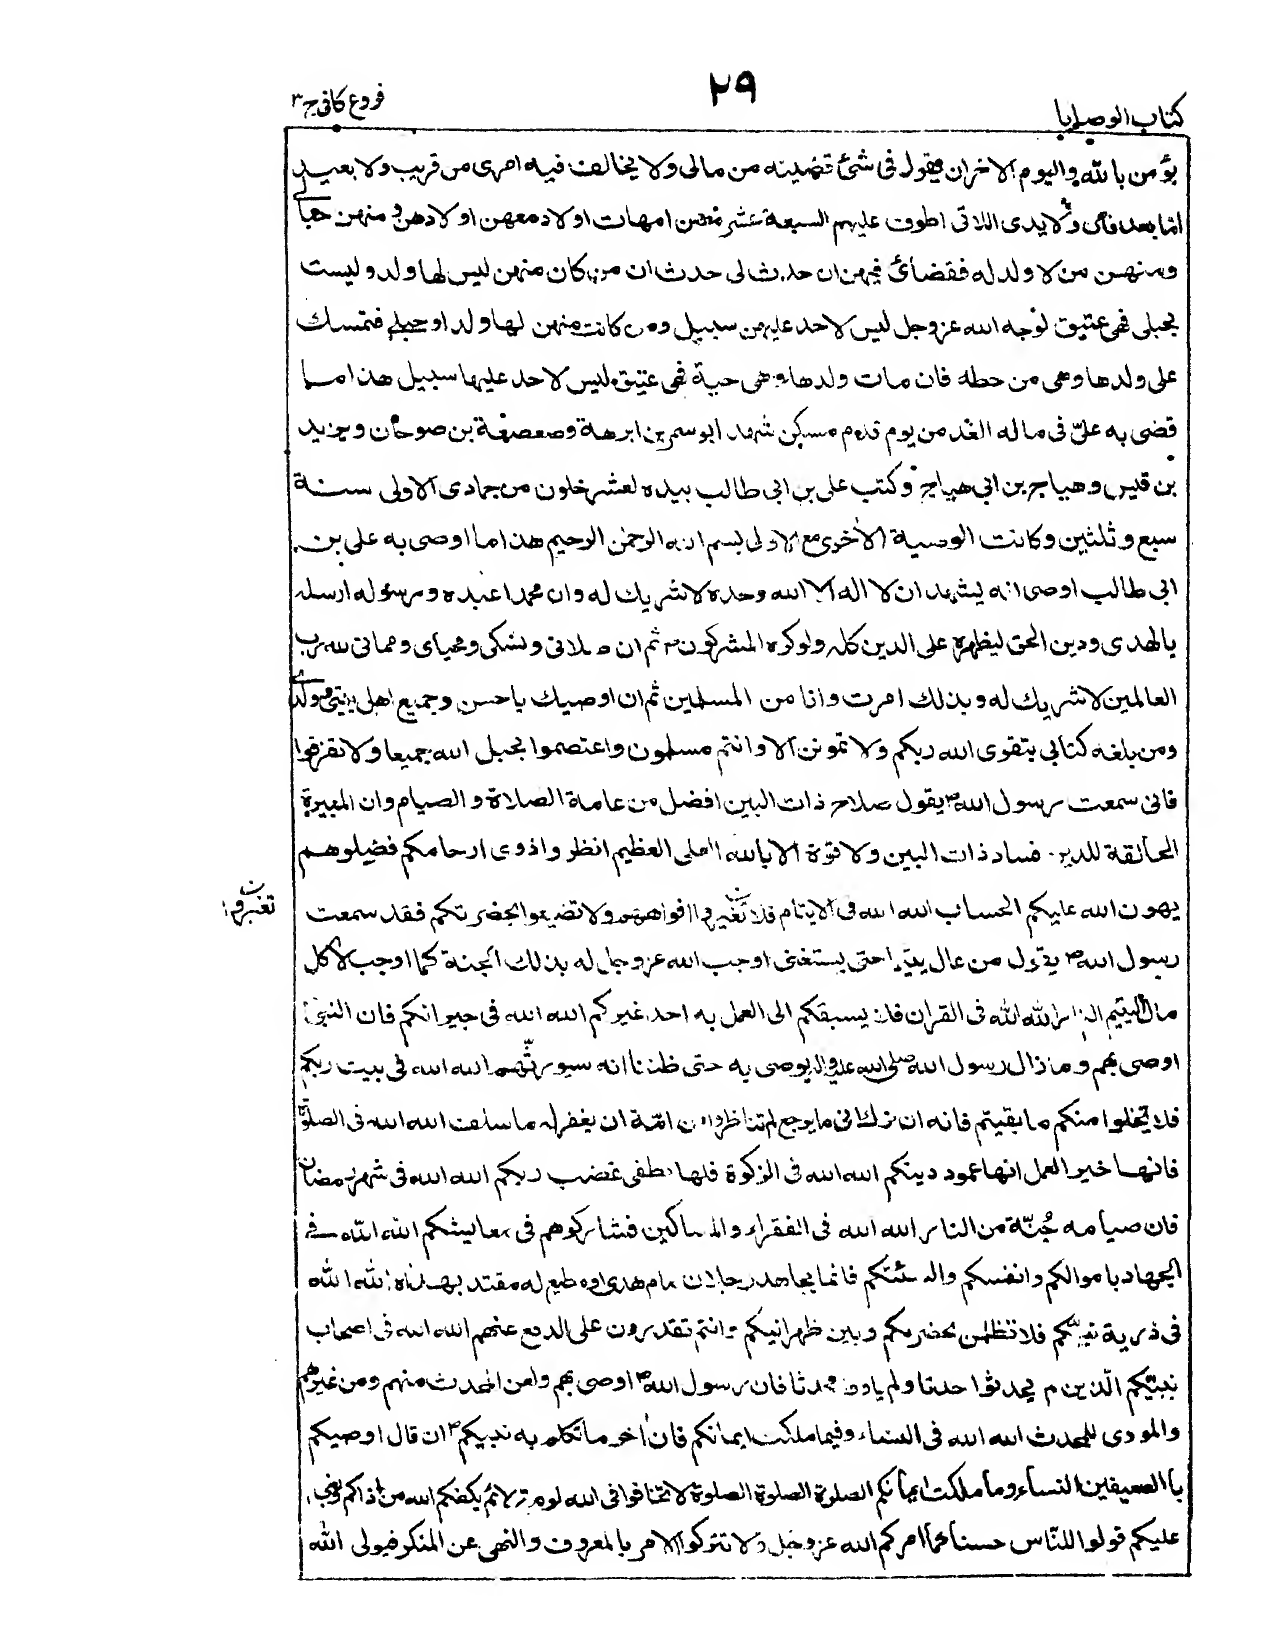 فروع كافى ج ٣
٢٩
كتاب الوصايا
يؤمن بالله واليوم الاخران يقول فى شئ قضيته من مالى ولا يخالف فيه امرى من قريب ولا بعيد
امابعد فان ولايدى اللاتى اطوف عليهم السبعة عشر منهن امهات اولاد معهن اولادهن و منهن حبا
ومنهن من لا ولد له فقضائ فيهن ان حدث لى حدث ان من كان منهن ليس لها ولد وليست
بحبلى فهى عتيق لوجه الله عز وجل ليس لاحد عليهن سبيل ومن كانت منهن لها ولد او حبلے فتمسك
على ولدها وهى من حظه فان مات ولدها وهى حية فهى عتيق ليس لاحد عليها سبيل هذا ما
قضى به علىّ فى ماله الغد من يوم قدم مسكن شهد ابو سمر بن ابرهة وصعصعة بن صوحان ويزيد
بن قيس وهياج بن ابى هياج وكتب على بن ابى طالب بيده لعشر خلون من جمادى الاولى سنة
سبع وثلثين وكانت الوصية الاخرى مع الاولى بسم الله الرحمن الرحيم هذا ما اوصى به على بن
ابى طالب اوصى انه يشهد ان لا اله الا الله وحده لاشريك له وان محمدا عبده ورسوله ارسله
بالهدى ودين الحق ليظهره على الدين كله ولوكره المشركون ثم ان صلاتى ونسكى ومحياى ومماتى لله رب
العالمين لاشريك له وبذلك امرت وانا من المسلمين ثم ان اوصيك ياحسن وجميع اهل بيتى وولدى
ومن بلغه كتابى بتقوى الله ربكم ولا تموتن الا وانتم مسلمون واعتصموا بحبل الله جميعا ولا تفرقوا
فانى سمعت رسول الله ص يقول صلاح ذات البين افضل من عامة الصلاة و الصيام وان المبيرة
الحالقة للدين فساد ذات البين ولا قوة الا بالله العلى العظيم انظر واذوى ارحامكم فضيلوهم
يهون الله عليكم الحساب الله الله فى الايتام فلا تغيروا افواههم ولا تضيعوا بحضرتكم فقد سمعت
رسول الله ص يقول من عال يتيما حتى يستغنى اوجب الله عز وجل له بذلك الجنة كما اوجب لآكل
مال اليتيم النار الله الله فى القران فلا يسبقكم الى العمل به احد غيركم الله الله فى جيرانكم فان النبى
اوصى بهم و مازال رسول الله صلى الله عليه واله يوصى به حتى ظننا انه سيورثهم الله الله فى بيت ربكم
فلا تخلوا منكم ما بقيتم فانه ان ترك لم تناظروا ان يغفر له ما سلف الله الله فى الصلوة
فانها خير العمل انها عمود دينكم الله الله فى الزكوة فلها تطفى غضب ربكم الله الله فى شهر رمضان
فان صيامه جُنّة من النار الله الله فى الفقراء والمساكين فشاركوهم فى معايشكم الله الله فے
الجهاد باموالكم وانفسكم والسنتكم فانما يجاهد رجلان امام هدى او مطيع له مقتد بهداه الله الله
فى ذرية نبيكم فلا تظلمن بحضرتكم وبين ظهرانيكم وانتم تقدرون على الدفع عنهم الله الله فى اصحاب
نبيكم الّذين لم يحدثوا حدثا ولم ياووا محدثا فان رسول الله ص اوصى بهم ولعن المحدث منهم ومن غيرهم
والمودى للمحدث الله الله فى النساء وفيما ملكت ايمانكم فان اخر ما تكلم به نبيكم ان قال اوصيكم
بالضعيفين النساء وما ملكت ايمانكم الصلوة الصلوة الصلوة لاتخافوا فى الله لومة لائم يكفكم الله من اذاكم وبغى
عليكم قولوا للنّاس حسنا كما امركم الله عز وجل ولا تتركوا الامر بالمعروف والنهى عن المنكر فيولى الله
تغيروا